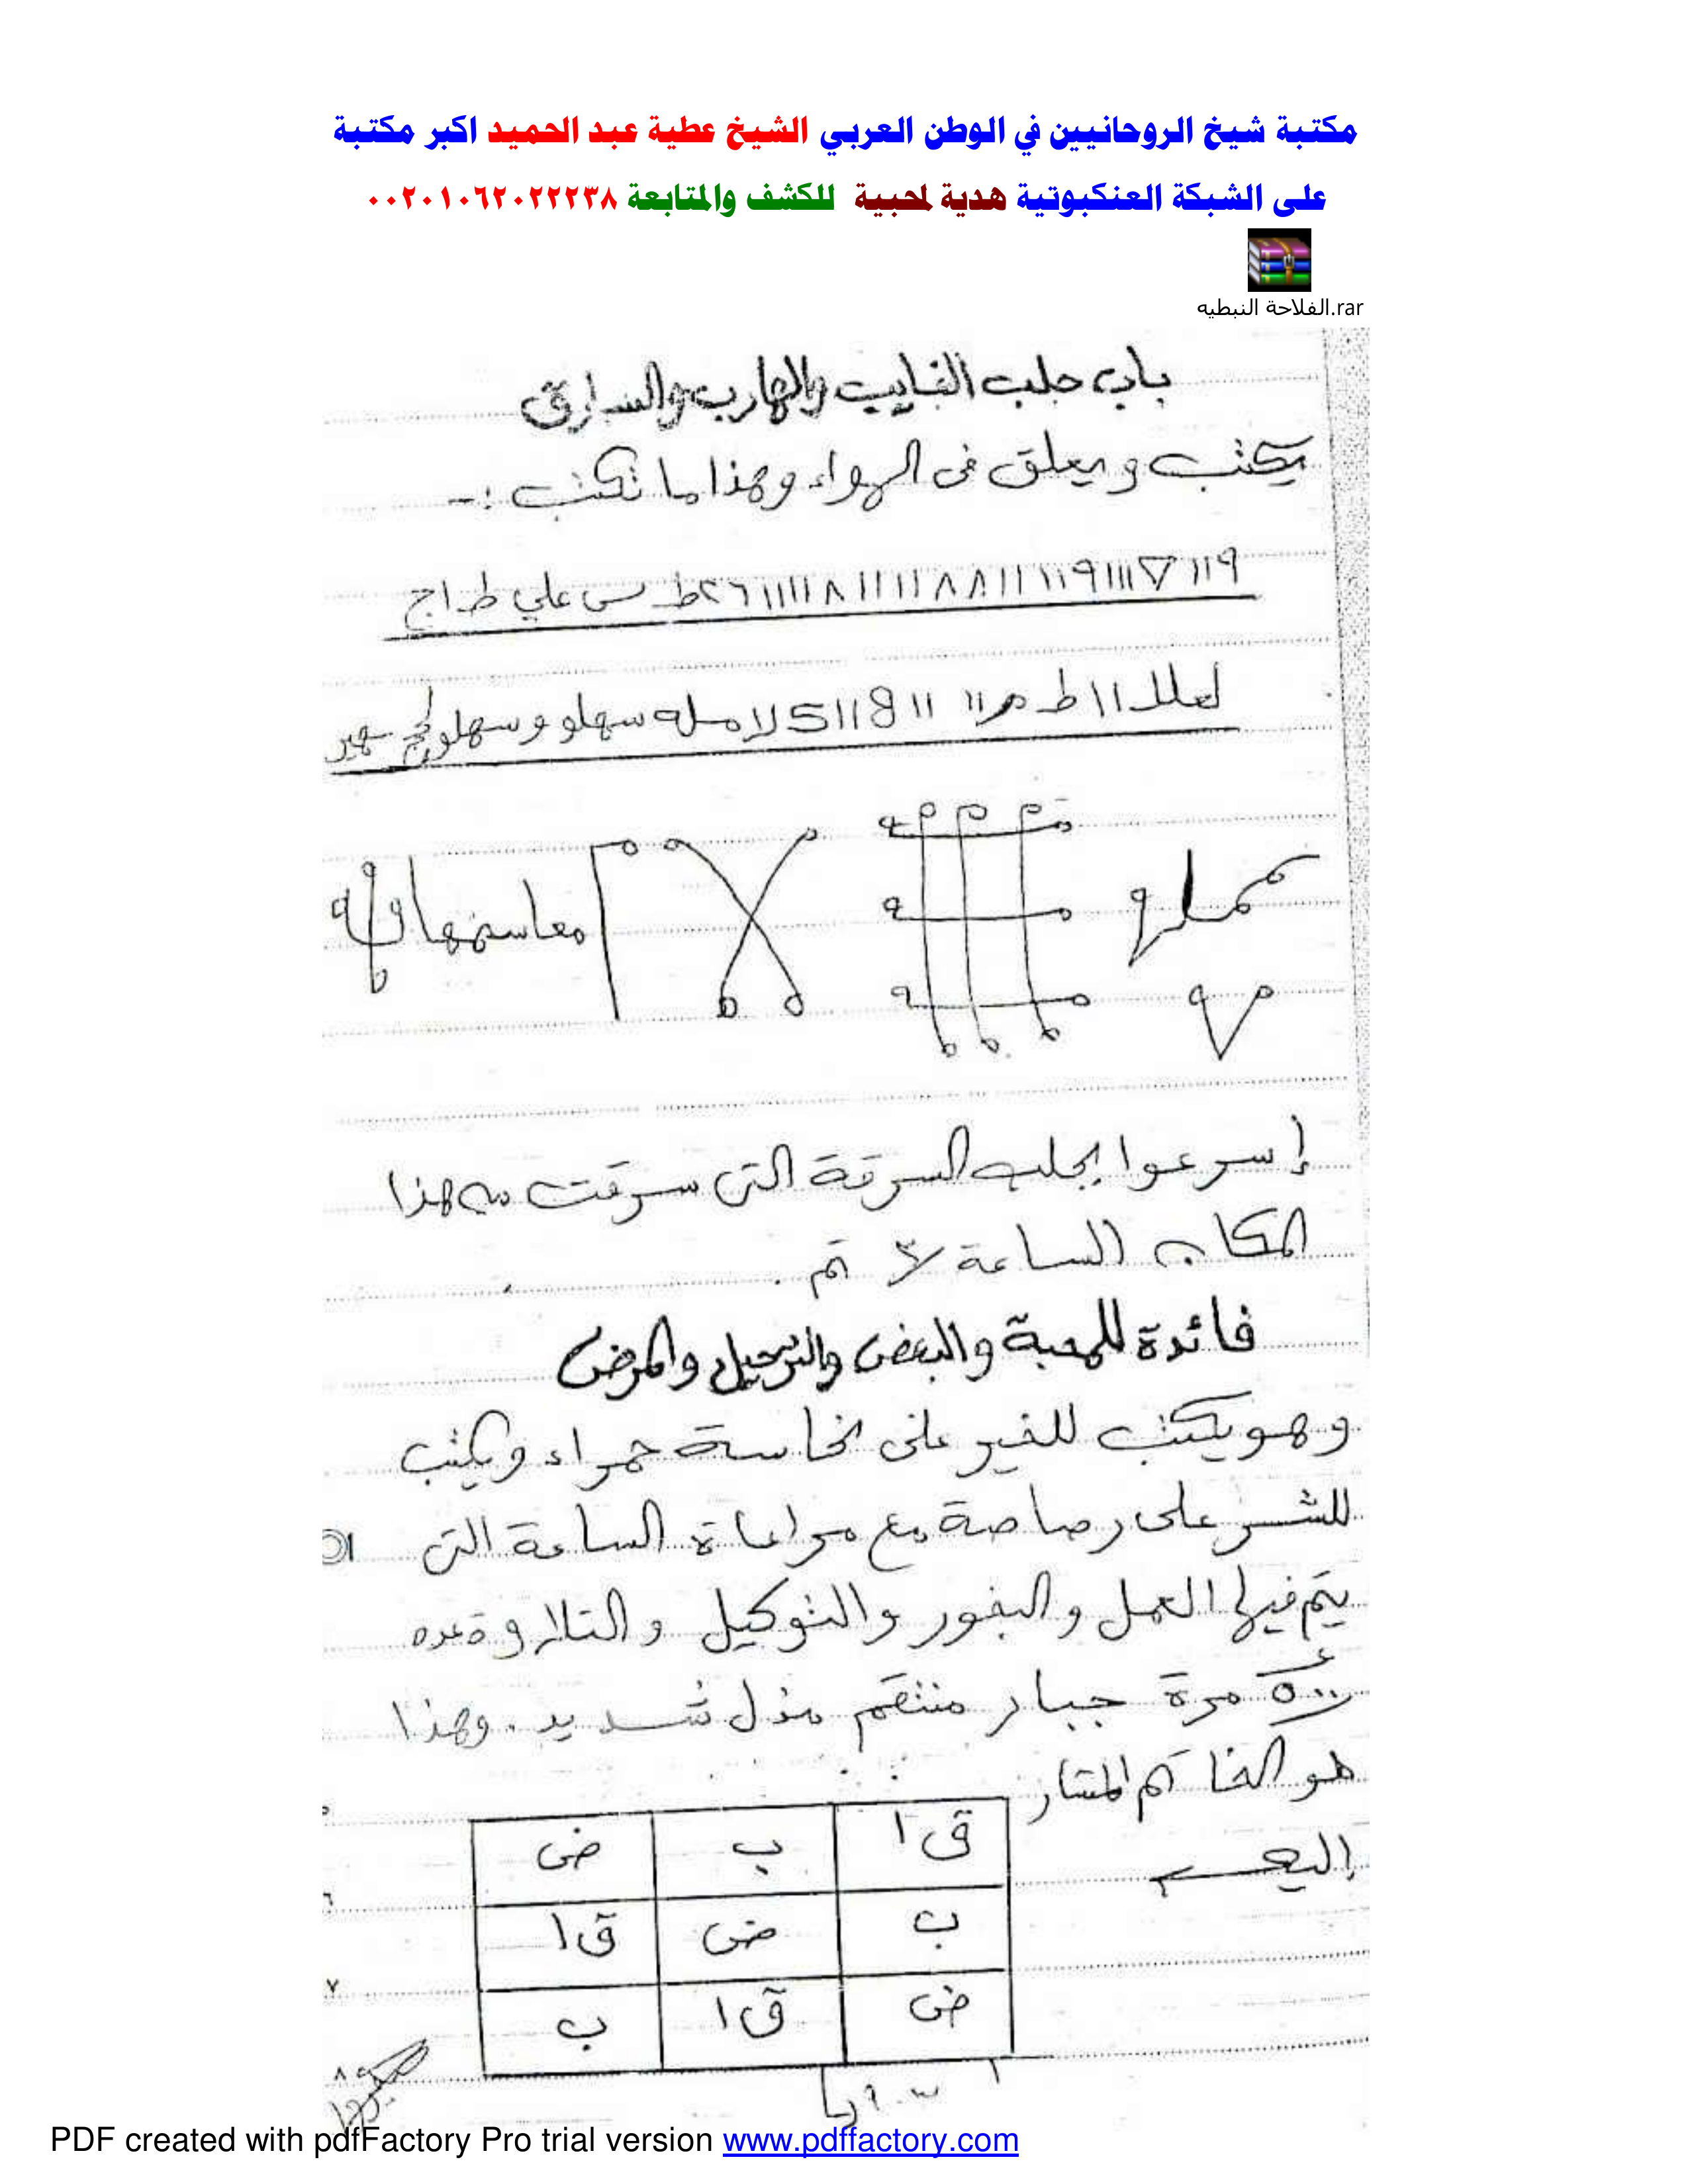 مكتبة شيخ الروحانيين في الوطن العربي الشيخ عطية عبد الحميد اكبر مكتبة
على الشبكة العنكبوتية هدية لمحبية للكشف والمتابعة ٠٠٢٠١٠٦٢٠٢٢٢٣٨
الفلاحة النبطيه.rar
باب جلب الغايب والهارب والسارق
يكتب ويعلق فى الهواء وهذا ما تكتب :-
على طراج
سهلو وسهلو
إسرعوا بجلب السرقة التى سرقت من هذا
المكان الساعة
فائدة للمحبة والبغض والترحيل والمرض
وهو يكتب للخير على نحاسة حمراء ويكتب
للشر على رصاصة مع مراعاة الساعة التى
يتم فيها العمل والبخور والتوكيل والتلاوة عدد
مرة جبار منتقم مذل شديد . وهذا
هو الخاتم المشار
إليه
ق ا ب ض
ب ض ق ا
ض ق ا ب
٦
٧
٨
PDF created with pdfFactory Pro trial version www.pdffactory.com